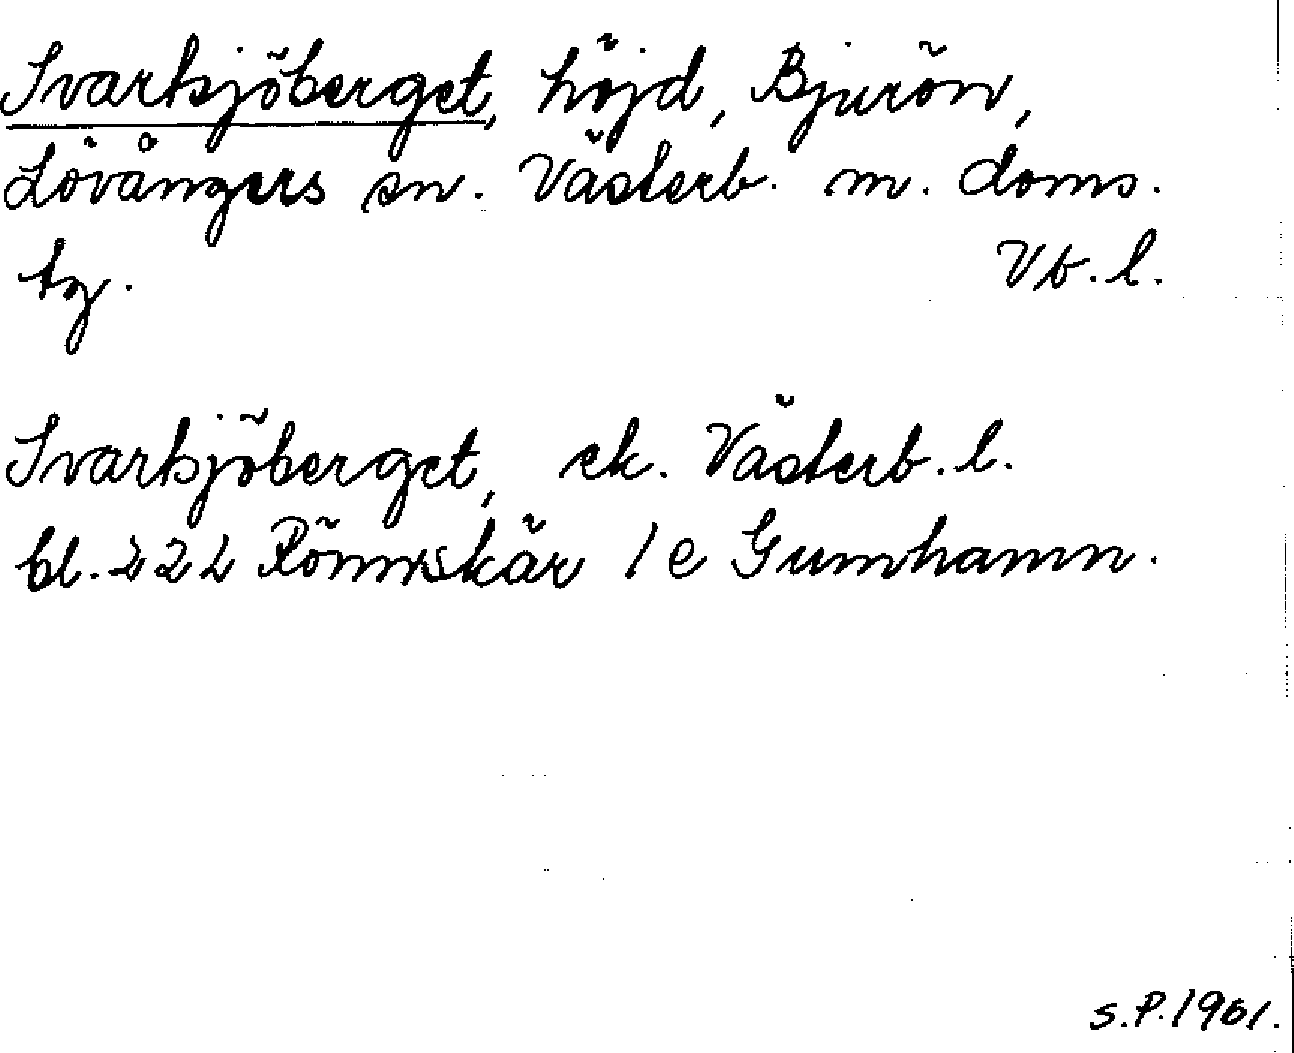 Svartsjöberget, höjd, Bjurön,
Lövångers sn. Västerb. m. doms.
tg. Vb. l.
Svartsjöberget, ek. Västerb. l.
bl. 222 Rönnskär 1 e Gumhamn.
S.P. 1961.